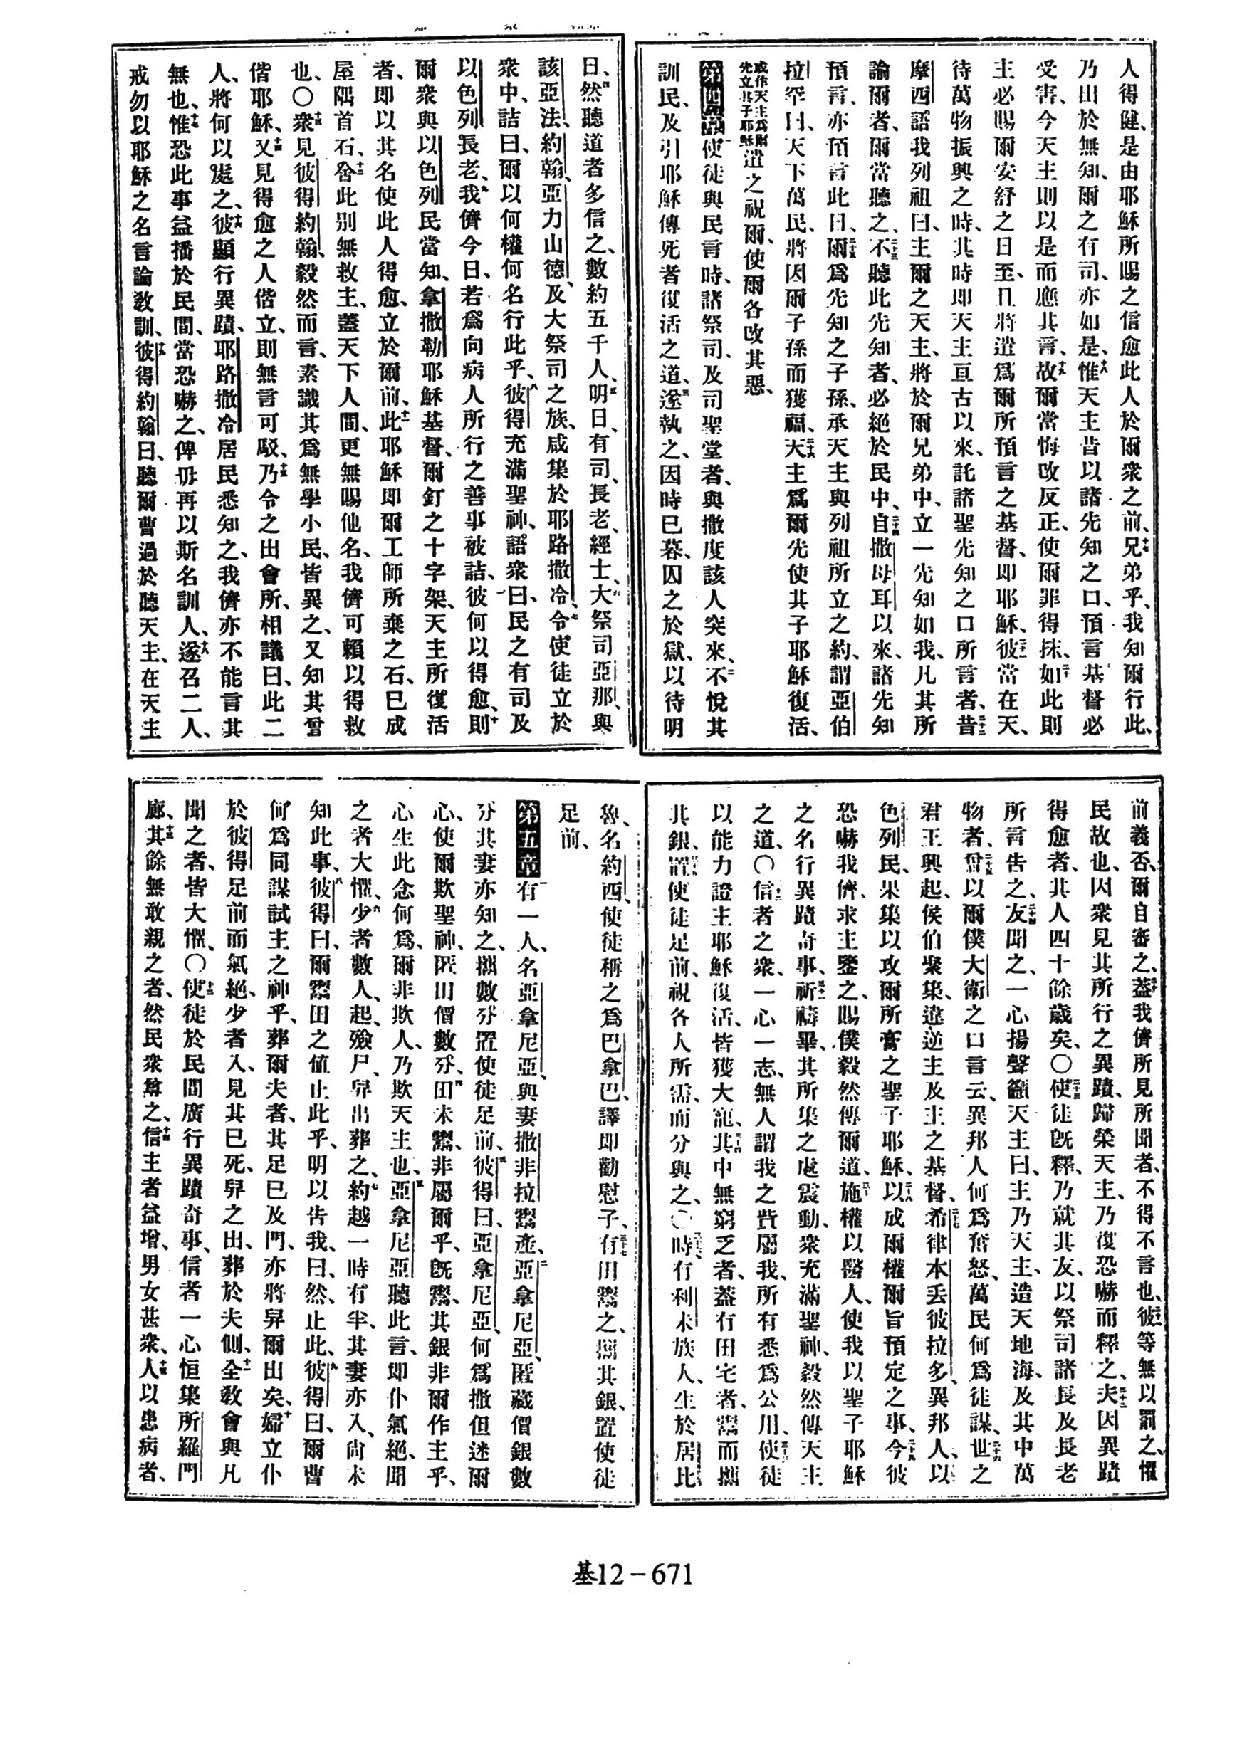 人得健、是由耶穌所賜之信愈此人於爾衆之前、兄弟乎、我知爾行此、
乃由於無知、爾之有司、亦如是、惟天主昔以諸先知之口、預言基督必
受害、今天主則以是而應其言、故爾當悔改反正、使爾罪得抹、如此則
主必賜爾安舒之日至、且將遣爲爾所預言之基督、即耶穌、彼當在天、
待萬物振興之時、其時即天主亘古以來、託諸聖先知之口所言者、昔
摩西語我列祖曰、主爾之天主、將於爾兄弟中、立一先知如我、凡其所
諭爾者、爾當聽之、不聽此先知者、必絕於民中、自撒母耳以來諸先知
預言、亦預言此日、爾爲先知之子孫、承天主與列祖所立之約、謂亞伯
拉罕曰、天下萬民、將因爾子孫而獲福、天主爲爾先使其子耶穌復活、
或作天主爲爾先立其子耶穌遣之祝爾、使爾各改其惡、
第四章使徒與民言時、諸祭司及司聖堂者、與撒度該人突來、不悅其
訓民、及引耶穌傳死者復活之道、遂執之、因時已暮、囚之於獄、以待明
日、然聽道者多信之、數約五千人、明日、有司、長老、經士、大祭司亞那、與
該亞法、約翰、亞力山德、及大祭司之族、咸集於耶路撒冷、令使徒立於
衆中、詰曰、爾以何權何名行此乎、彼得充滿聖神、語衆曰、民之有司及
以色列長老、我儕今日、若爲向病人所行之善事被詰、彼何以得愈、則
爾衆與以色列民當知、拿撒勒耶穌基督、爾釘之十字架、天主所復活
者、即以其名使此人得愈、立於爾前、此耶穌即爾工師所棄之石、已成
屋隅首石、舍此别無救主、蓋天下人間、更無賜他名、我儕可賴以得救
也、〇衆見彼得約翰、毅然而言、素識其爲無學小民、皆異之、又知其曾
偕耶穌、又見得愈之人偕立、則無言可駁、乃令之出會所、相議曰、此二
人、將何以處之、彼顯行異蹟、耶路撒冷居民悉知之、我儕亦不能言其
無也、惟恐此事益播於民間、當恐嚇之、俾毋再以斯名訓人、遂召二人、
戒勿以耶穌之名言論教訓、彼得約翰曰、聽爾曹過於聽天主、在天主
前義否、爾自審之、蓋我儕所見所聞者、不得不言也、彼等無以罰之、懼
民故也、因衆見其所行之異蹟、歸榮天主、乃復恐嚇而釋之、夫因異蹟
得愈者、其人四十餘歲矣、〇使徒既釋、乃就其友、以祭司諸長及長老
所言告之、友聞之、一心揚聲籲天主曰、主乃天主、造天地海、及其中萬
物者、曾以爾僕大衛之口言云、異邦人何爲奮怒、萬民何爲徒謀、世之
君王興起、侯伯聚集、違逆主及主之基督、希律本丢彼拉多、異邦人、以
色列民、果集以攻爾所膏之聖子耶穌、以成爾權爾旨預定之事、今彼
恐嚇我儕、求主鑒之、賜僕毅然傳爾道、施權以醫人、使我以聖子耶穌
之名行異蹟奇事、祈禱畢、其所集之處震動、衆充滿聖神、毅然傳天主
之道、〇信者之衆、一心一志、無人謂我之貲屬我、所有悉爲公用、使徒
以能力證主耶穌復活、皆獲大寵、其中無窮乏者、蓋有田宅者、鬻而攜
其銀、置使徒足前、視各人所需、而分與之、〇時有利未族人、生於居比
魯、名約西、使徒稱之爲巴拿巴、譯即勸慰子、有田鬻之、攜其銀、置使徒
足前、
第五章有一人、名亞拿尼亞、與妻撒非拉鬻產、亞拿尼亞、匿藏價銀數
分、其妻亦知之、攜數分置使徒足前、彼得曰、亞拿尼亞、何爲撒但迷爾
心、使爾欺聖神、匿田價數分、田未鬻、非屬爾乎、既鬻、其銀非爾作主乎、
心生此念何爲、爾非欺人、乃欺天主也、亞拿尼亞聽此言、即仆氣絕、聞
之者大懼、少者數人、起殮尸、舁出葬之、約越一時有半、其妻亦入、尚未
知此事、彼得曰、爾鬻田之值止此乎、明以告我、曰、然止此、彼得曰、爾曹
何爲同謀試主之神乎、葬爾夫者、其足已及門、亦將舁爾出矣、婦立仆
於彼得足前而氣絕、少者入、見其已死、舁之出、葬於夫側、全教會與凡
聞之者、皆大懼、〇使徒於民間廣行異蹟奇事、信者一心恒集所羅門
廊、其餘無敢親之者、然民衆尊之、信主者益增、男女甚衆、人以患病者、
基12－671